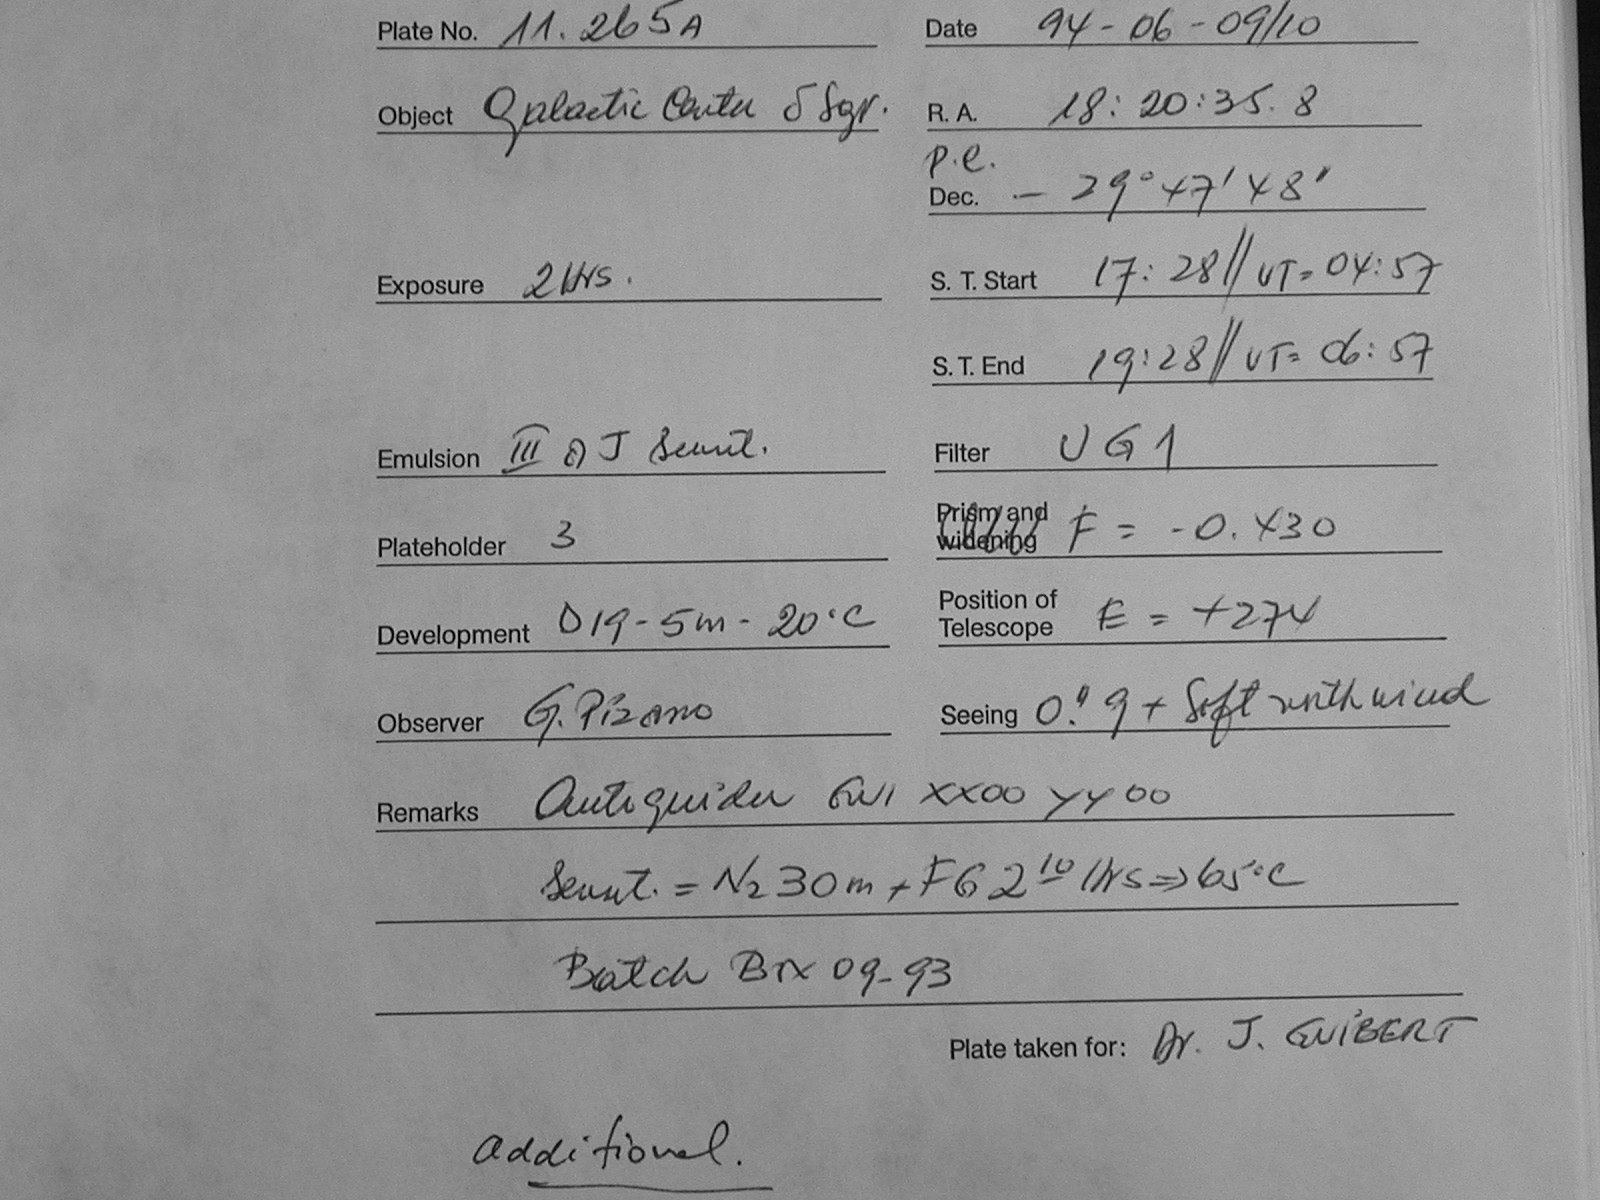 Plate No. 11.265A Date 94-06-09/10
Object Galactic Center δ Sgr. R. A. 18:20:35.8
p.e.
Dec. - 29°47'48"
Exposure 2Hrs. S. T. Start 17:28// UT=04:57
S. T. End 19:28// UT=06:57
Emulsion III a J Senst. Filter UG1
Plateholder 3 Prism and widening F = -0.430
Development D19-5m-20°C Position of
Telescope E = +274
Observer G. Pizarro Seeing 0."9 + Soft north wind
Remarks Autoguider GVI XX00 YY00
Senst. = N2 30m + FG 2 10 Hrs => 65°C
Batch Box 09-93
Plate taken for: Dr. J. GUIBERT
additional.